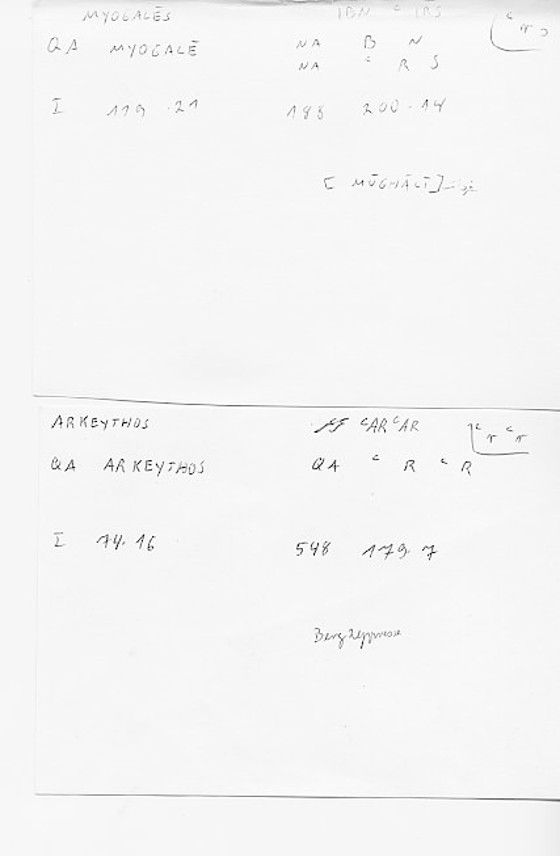 MYOGALĒS IBN ᶜIRS
QA MYOGALĒ NA B N
NA ᶜ R S
I 119 .21 188 200.14
[ MŪGHĀLĪ]
ARKEYTHOS ᶜARᶜAR ᶜrᶜr
QA ARKEYTHOS QA ᶜ R ᶜ R
I 74.16 548 179.7
Bergzypresse